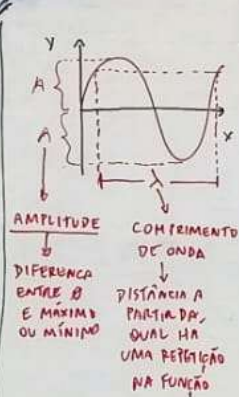 y
A
A
x
λ
AMPLITUDE
DIFERENÇA
ENTRE 0
E MÁXIMO
OU MÍNIMO
COMPRIMENTO
DE ONDA
DISTÂNCIA A
PARTIR DA,
QUAL HA
UMA REPETIÇÃO
NA FUNÇÃO